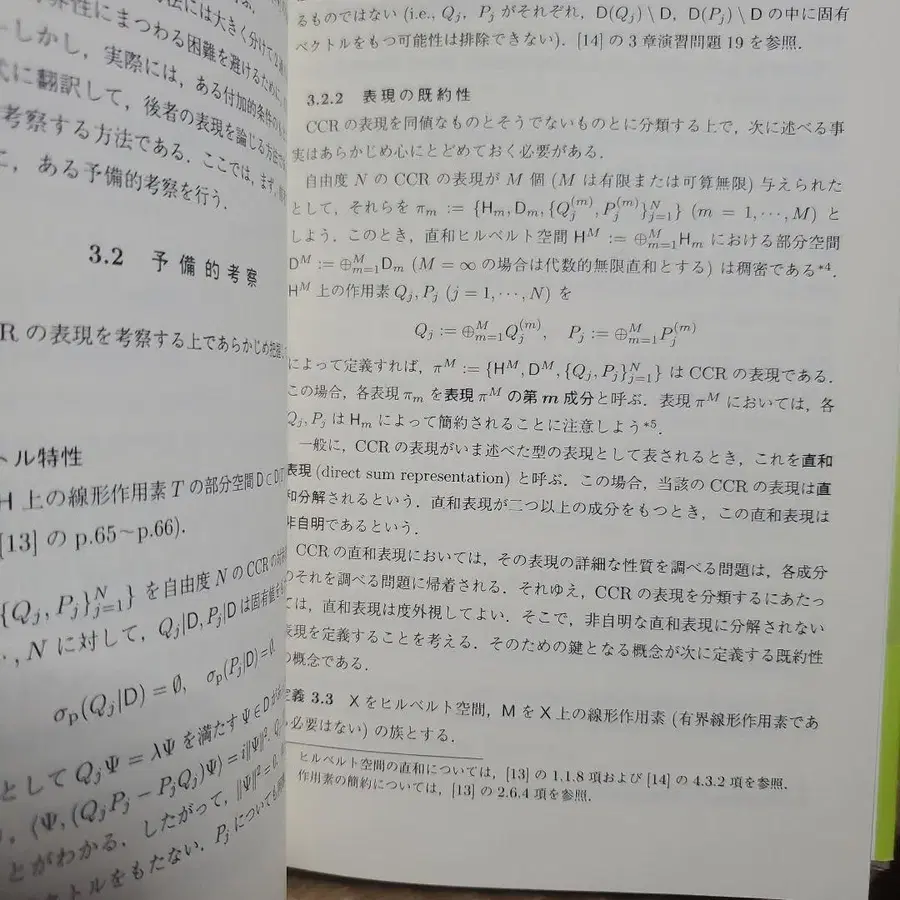 算性にまつわる困難を避けるために,
しかし,実際には,ある付加的条件
式に翻訳して,後者の表現を論じる方法で
考察する方法である.ここでは,まず,
に,ある予備的考察を行う.
3.2 予備的考察
R の表現を考察する上であらかじめ把握
トル特性
H 上の線形作用素 T の部分空間 D ⊂ D(T
[13] の p.65~p.66).
{Q_j, P_j}_{j=1}^N} を自由度 N の CCR の
, N に対して, Q_j|D, P_j|D は固有
σ_p(Q_j|D) = ∅, σ_p(P_j|D) = ∅.
として Q_jΨ = λΨ を満たす Ψ ∈ D
, ⟨Ψ, (Q_jP_j − P_jQ_j)Ψ⟩ = i‖Ψ‖².
とがわかる.したがって, ‖Ψ‖² = 0.
クトルをもたない. P_j についても
るものではない (i.e., Q_j, P_j がそれぞれ, D(Q_j) \ D, D(P_j) \ D の中に固有
ベクトルをもつ可能性は排除できない). [14] の 3 章演習問題 19 を参照.
3.2.2 表現の既約性
CCR の表現を同値なものとそうでないものとに分類する上で,次に述べる事
実はあらかじめ心にとどめておく必要がある.
自由度 N の CCR の表現が M 個 (M は有限または可算無限) 与えられた
として,それらを π_m := {H_m, D_m, {Q_j^{(m)}, P_j^{(m)}}_{j=1}^N} (m = 1, ···, M) と
しよう.このとき,直和ヒルベルト空間 H^M := ⊕_{m=1}^M H_m における部分空間
D^M := ⊕_{m=1}^M D_m (M = ∞ の場合は代数的無限直和とする) は稠密である*4.
H^M 上の作用素 Q_j, P_j (j = 1, ···, N) を
Q_j := ⊕_{m=1}^M Q_j^{(m)}, P_j := ⊕_{m=1}^M P_j^{(m)}
によって定義すれば, π^M := {H^M, D^M, {Q_j, P_j}_{j=1}^N} は CCR の表現である.
この場合,各表現 π_m を表現 π^M の第 m 成分と呼ぶ.表現 π^M においては,各
Q_j, P_j は H_m によって簡約されることに注意しよう*5.
一般に, CCR の表現がいま述べた型の表現として表されるとき,これを直和
表現 (direct sum representation) と呼ぶ.この場合,当該の CCR の表現は直
和分解されるという.直和表現が二つ以上の成分をもつとき,この直和表現は
非自明であるという.
CCR の直和表現においては,その表現の詳細な性質を調べる問題は,各成分
のそれを調べる問題に帰着される.それゆえ, CCR の表現を分類するにあたっ
ては,直和表現は度外視してよい.そこで,非自明な直和表現に分解されない
表現を定義することを考える.そのための鍵となる概念が次に定義する既約性
の概念である.
定義 3.3 X をヒルベルト空間, M を X 上の線形作用素 (有界線形作用素であ
る必要はない) の族とする.
ヒルベルト空間の直和については, [13] の 1.1.8 項および [14] の 4.3.2 項を参照.
作用素の簡約については, [13] の 2.6.4 項を参照.